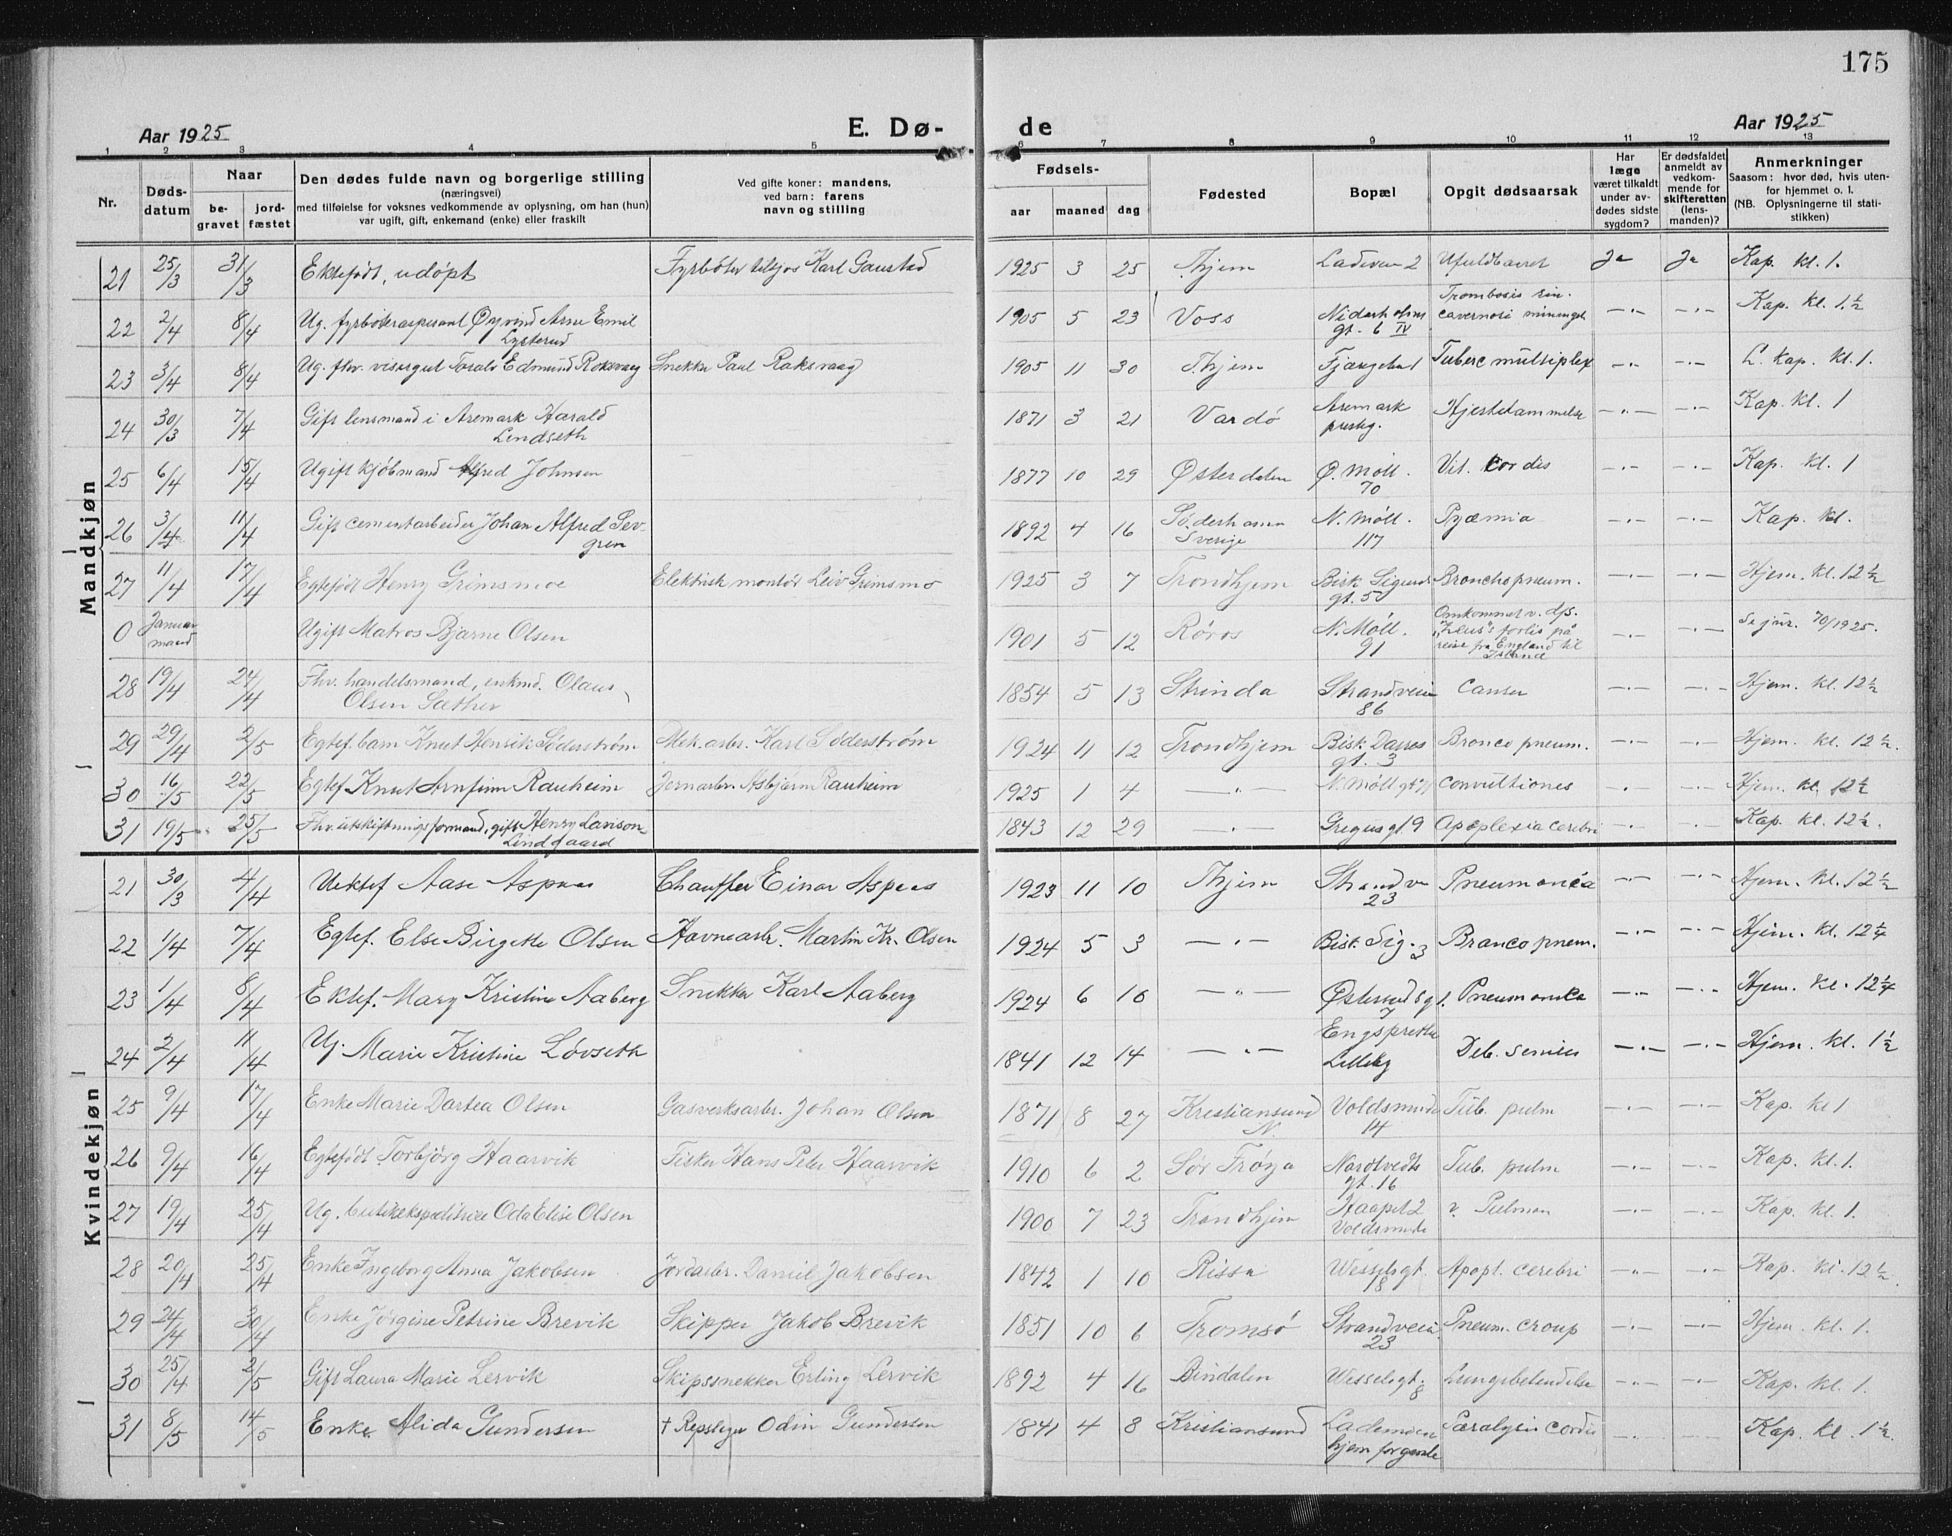 175
Aar 1925 E. Dø- de Aar 1925
1 2 3 4 5 6 7 8 9 10 11 12 13
Nr. Døds-datum Naar be-gravet jord-fæstet
Den dødes fulde navn og borgerlige stilling
(næringsvei)
med tilføielse for voksnes vedkommende av oplysning, om han (hun)
var ugift, gift, enkemand (enke) eller fraskilt
Ved gifte koner: mandens,
ved barn: farens
navn og stilling
Fødsels- aar maaned dag
Fødested Bopæl Opgit dødsaarsak
Har læge været tilkaldt under av-dødes sidste sygdom?
Er dødsfaldet anmeldt av vedkom-mende for skifteretten (lens-manden)?
Anmerkninger
Saasom: hvor død, hvis uten-for hjemmet o. l.
(NB. Oplysningerne til stati-stikken)
Mandkjøn
21 25/3 31/3 Ektefødt, udöpt Fyrböter Karl Gaustad 1925 3 25 Thjem Ladevein 2 Ufuldbaaret Ja Ja Kap. kl. 1.
22 2/4 8/4 Ug. fyrböteraspirant Øyvind Arne Emil 1905 5 23 Voss gt. 6 IV Trombosis sin. —"— —"— Kap. kl. 1 1/2
23 3/4 8/4 Ug. fhv. visergut Toralv Edmund Roksvaag Snekker Paul Roksvaag 1905 11 30 Thjem Tuberc multiplex —"— —"— L. Kap. kl. 1.
24 30/3 7/4 Gift lensmand i Aremark Harald Lindseth 1871 3 21 Vardö Aremark prestg. Hjertelammelse —"— —"— Kap. kl. 1
25 6/4 15/4 Ugift kjöbmand Alfred Johnsen 1877 10 29 Østerdalen Ø. Möll. 70 Vit. Cordis —"— —"— Kap. kl. 1
26 3/4 11/4 Gift cementarbeider Johan Alfred Sev-gren 1892 4 16 Söderhamn Sverige N. Möll. 117 Pyæmia —"— —"— Kap. kl.
27 11/4 17/4 Egtefödt Henry Grimsmoe Elektrisk montör Leiv Grimsmo 1925 3 7 Trondhjem Bisk Sigurds gt. 5 Bronchopneum. —"— —"— Hjem. kl. 12 1/2
0 Januar maaned Ugift Matros Bjarne Olsen 1901 5 12 Röros N. Möll. 91 Omkommet v. d/s. "Zeus"s forlis på reise fra England til Island —"— —"— Se jnr. 70/1925.
28 19/4 24/4 Fhv. handelsmand, enkmd. Olaus Olsen Sæther 1854 5 13 Strinda Strandveien 86 Canser —"— —"— Hjem. kl. 12 1/2
29 29/4 2/5 Egtef. barn Knut Henrik Söderström Mek. arbr. Karl Söderström 1924 11 12 Trondhjem Bisk. Darres gt. 3 Bronco pneum. —"— —"— Hjem. kl. 12 1/2.
30 16/5 22/5 Egtef Knut Arnfinn Rauheim Jernarbr. Asbjørn Rauheim 1925 1 4 —"— N. Möll gt 71 convultiones —"— —"— Hjem. kl. 12 1/2
31 19/5 25/5 Fhv. utskiftningsformand, gift Henry Lavison Lindgaard 1843 12 29 —"— Gregus gt 9 Apoplexia cerebri —"— —"— Kap. kl. 12 1/2.
Kvindekjøn
21 30/3 4/4 Uektef Aase Aspaas Chauffør Einar Aspaas 1923 11 10 Thjem Strandvn 23 Pneumonia —"— —"— Hjem. kl. 12 1/2
22 1/4 7/4 Egtef. Else Birgitte Olsen Havnearbr. Martin Kr. Olsen 1924 5 3 —"— Bisk. Sig. 3 Broncopnem. —"— —"— Hjem. kl. 12 1/4
23 1/4 8/4 Ektef. Mary Kristine Aaberg Snekker Karl Aaberg 1924 6 10 —"— Østersundsgt. 7 Pneumonia —"— —"— Hjem. kl. 12 1/4
24 2/4 11/4 Ug. Marie Kristine Lövseth 1841 12 14 —"— Deb. Seniles —"— —"— Hjem. kl. 1 1/2
25 9/4 17/4 Enke Marie Dortea Olsen Gasverksarbr. Johan Olsen 1871 8 27 Kristiansund N. Voldsminde 14 Tub. pulm —"— —"— Kap. kl 1
26 9/4 16/4 Egtefödt Torbjörg Haarvik Fisker Hans Peter Haarvik 1910 6 2 Sör Fröya Nordtvedts gt. 16 Tub. pulm —"— —"— Kap. kl. 1.
27 19/4 25/4 Ug. butikekspeditrice Oda Elise Olsen 1900 7 23 Trondhjem Haapet 2 Voldsminde —"— —"— Kap. kl. 1.
28 20/4 25/4 Enke Ingeborg Anna Jakobsen Jordarbr. Daniel Jakobsen 1842 1 10 Rissa Wesselsgt. 18 Apopl. cerebri —"— —"— Kap. kl. 12 1/2.
29 24/4 30/4 Enke Jörgine Petrine Brevik Skipper Jakob Brevik 1851 10 6 Tromsö Strandveien 23 Pneum. croup —"— —"— Hjem. kl. 1.
30 25/4 2/5 Gift Laura Marie Lervik Skipssnekker Erling Lervik 1892 4 16 Bindalen Wesselsgt. 8 Lungebetendelse —"— —"— Kap. kl. 1.
31 8/5 14/5 Enke Alida Gundersen † Repslager Odin Gundersen 1841 4 8 Kristiansund Lademoen hjem for gamle Paralysis Cordis —"— —"— Kap. kl. 1 1/2.